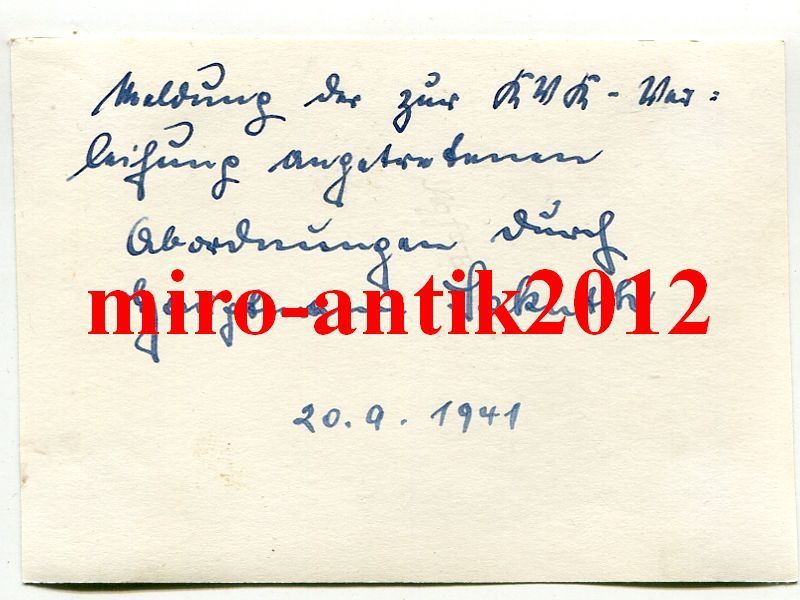 Meldung der zur KVK-Ver=
leihung angetretenen
Abordnungen durch
miro-antik2012
Hauptmann
20.9.1941